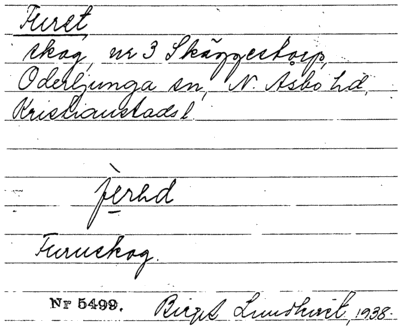 Furet,
skog, nr 3 Skäggestorp,
Oderljunga sn, N. Åsbo hd,
Kristianstads l.
Furuskog.
Nr 5499. Birgit Lundkvist 1938.